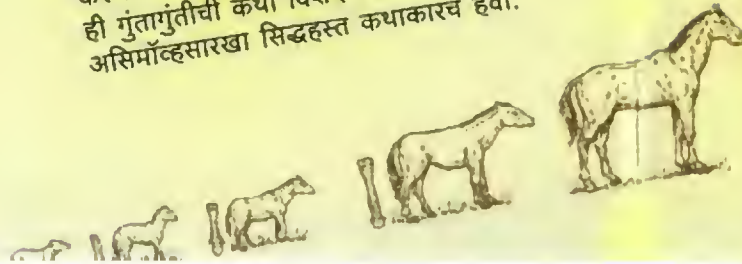 ही गुंतागुंतीची कथा
असिमॉव्हसारखा सिद्धहस्त कथाकारच हवा.